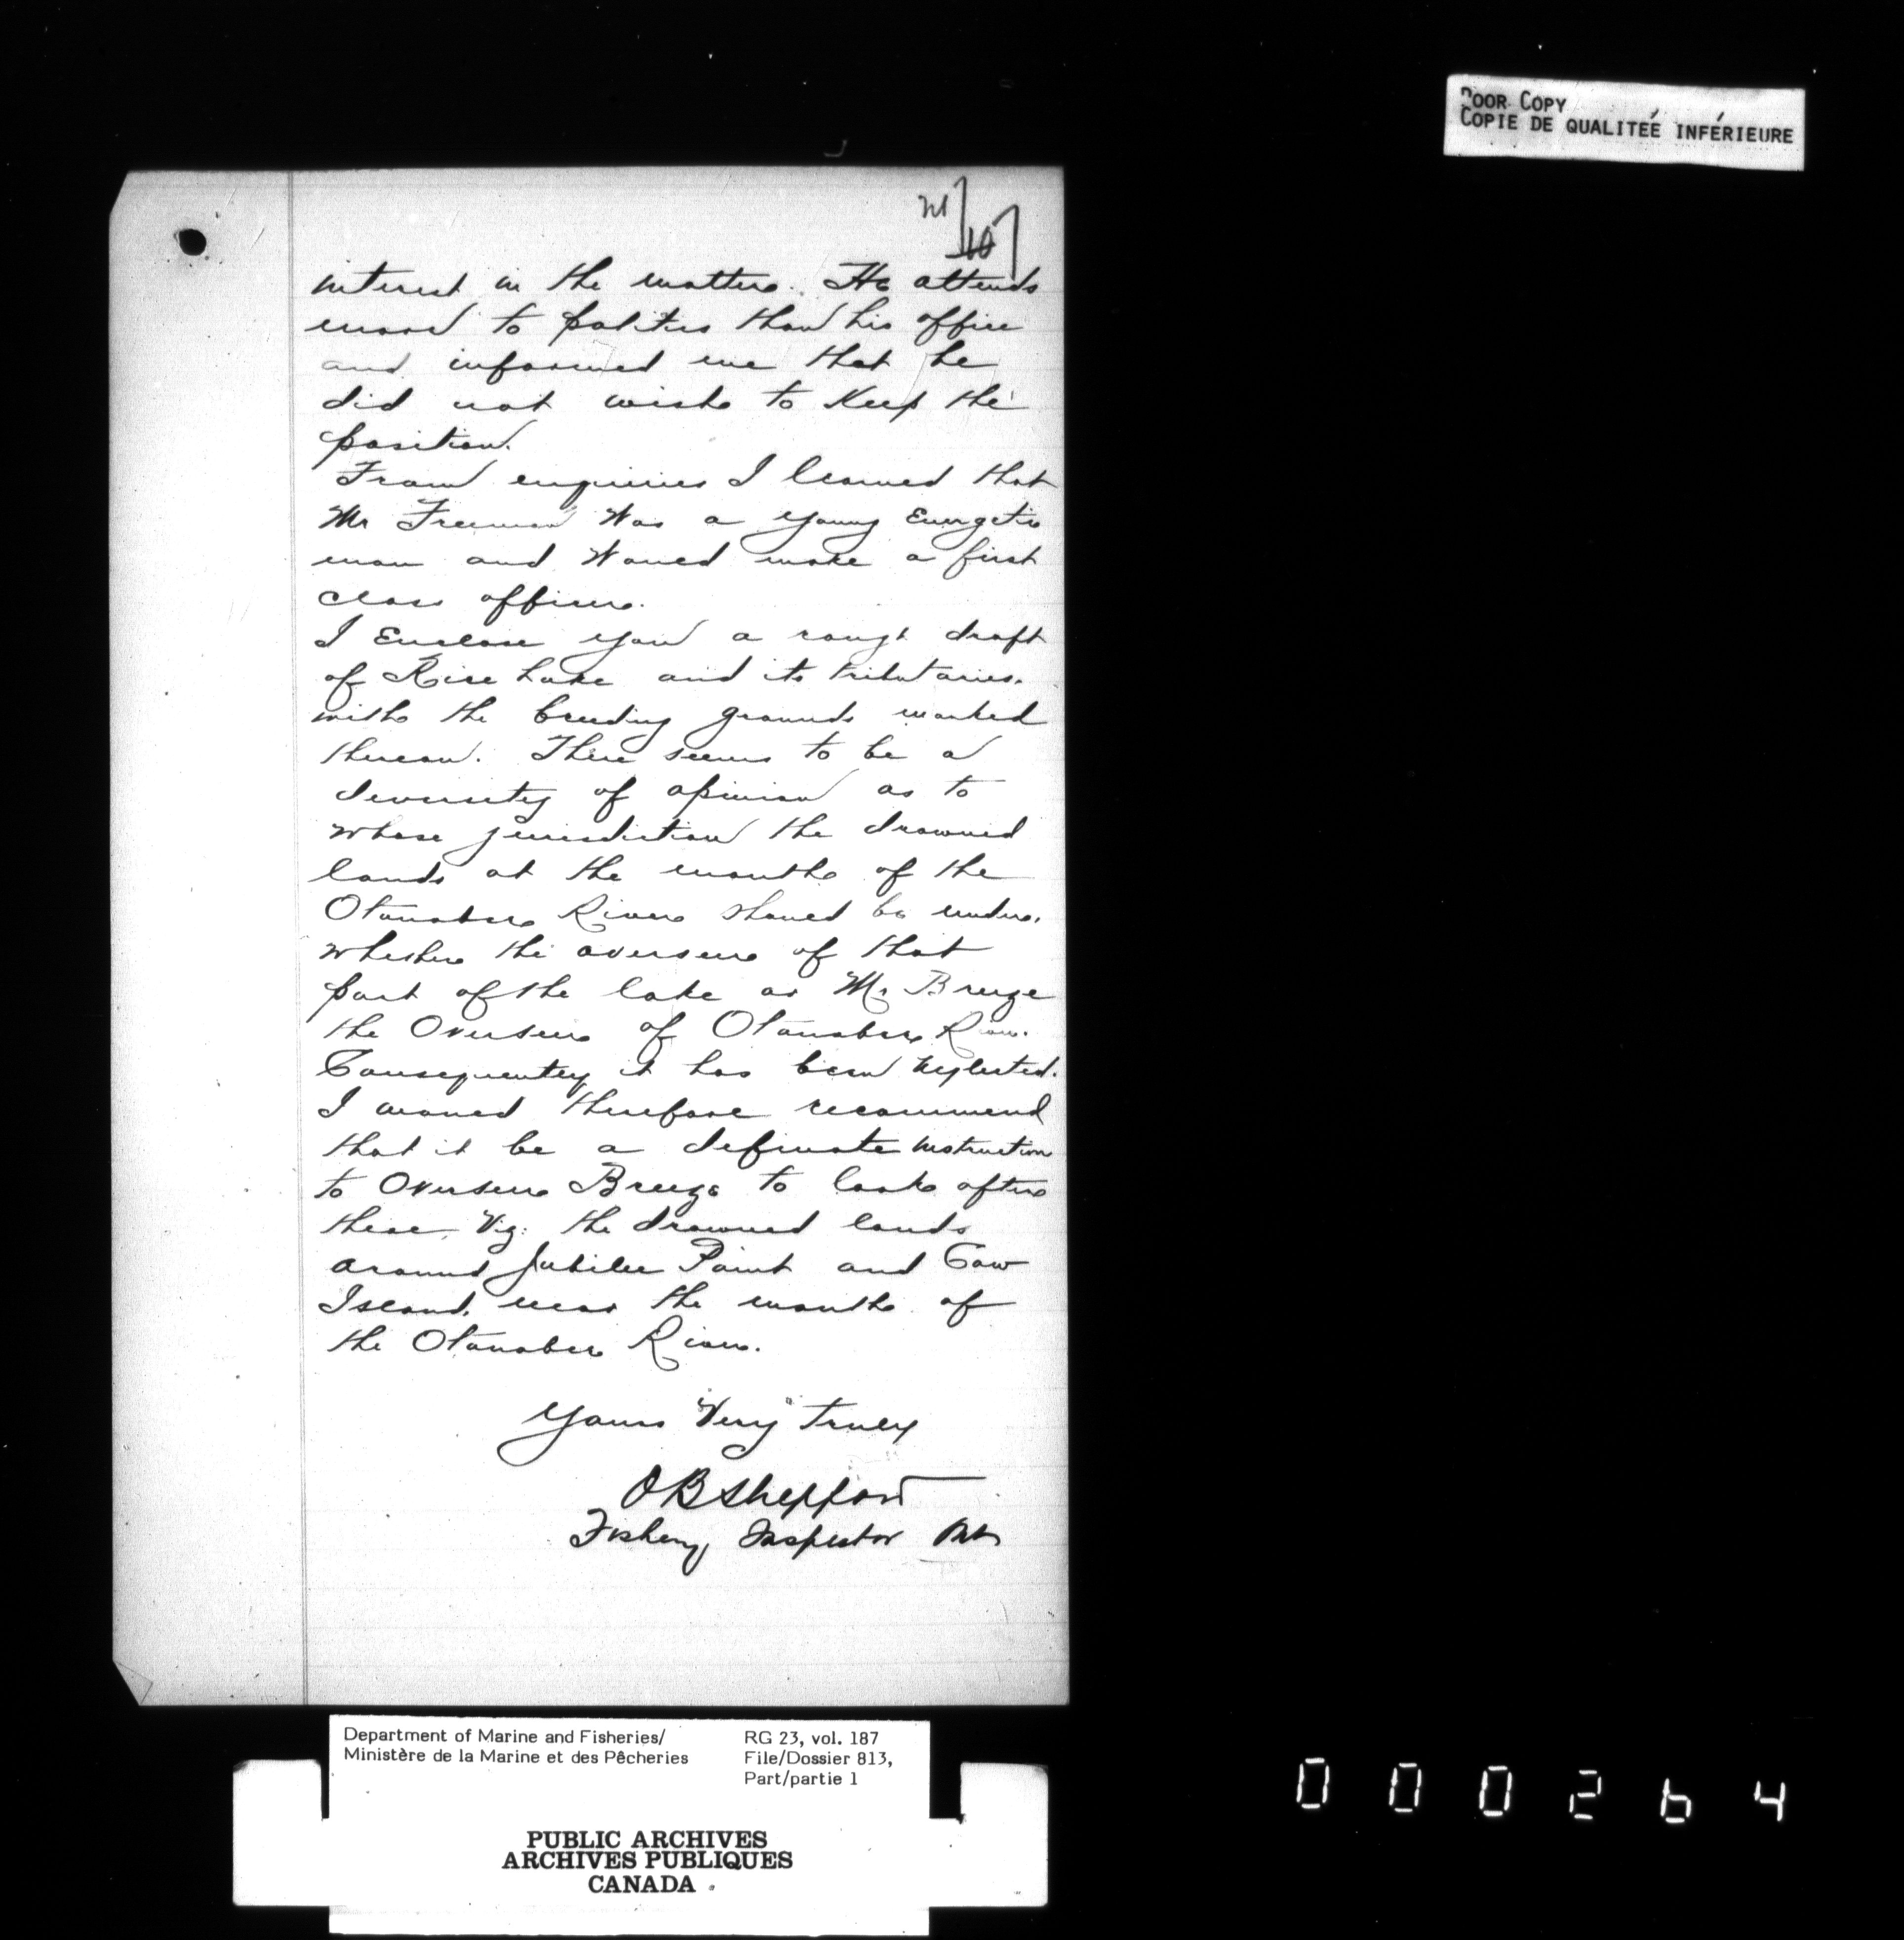 POOR COPY
COPIE DE QUALITEÉ INFÉRIEURE
10
interest in the matter. He attends
more to politics than his office
and informed me that he
did not wish to Keep the
position.
From enquiries I learned that
Mr Freeman Was a young Energetic
man and Would make a first
class officer.
I Enclose you a rough draft
of Rice Lake and its tributaries.
with the breeding grounds marked
thereon. There seems to be a
diversity of opinion as to
whose jurisdiction the drowned
lands at the mouth of the
Otonabee River should be under.
whether the overseer of that
part of the lake or Mr Breeze
the Overseer of Otonabee River.
Consequently it has been neglected.
I would therefore recommend
that it be a definate instruction
to Overseer Breeze to look after
these, Viz: the drowned lands
around Jubilee Point and Cow
Island, near the mouth of
the Otonabee River.
Yours Very Truly
O B Sheppard
Fishery Inspector Ont
Department of Marine and Fisheries/
Ministère de la Marine et des Pêcheries
RG 23, vol. 187
File/Dossier 813,
Part/partie 1
PUBLIC ARCHIVES
ARCHIVES PUBLIQUES
CANADA
000264